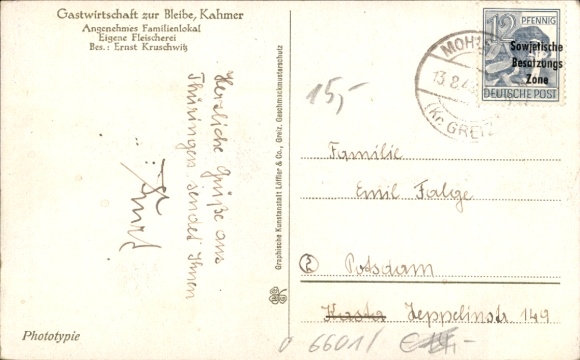 Gastwirtschaft zur Bleibe, Kahmer
Angenehmes Familienlokal
Eigene Fleischerei
Bes.: Ernst Kruschwitz
Herzliche Grüße aus
Thüringen sendet Ihnen
Phototypie
Graphische Kunstanstalt Löffler & Co., Greiz, Geschmackmusterschutz
15,-
MOHLS
13.8.4
(Kr. GREIZ
12 PFENNIG
Sowjetische
Besatzungs
Zone
DEUTSCHE POST
Familie
Emil Falge
Potsdam
Zeppelinstr 149
6601/